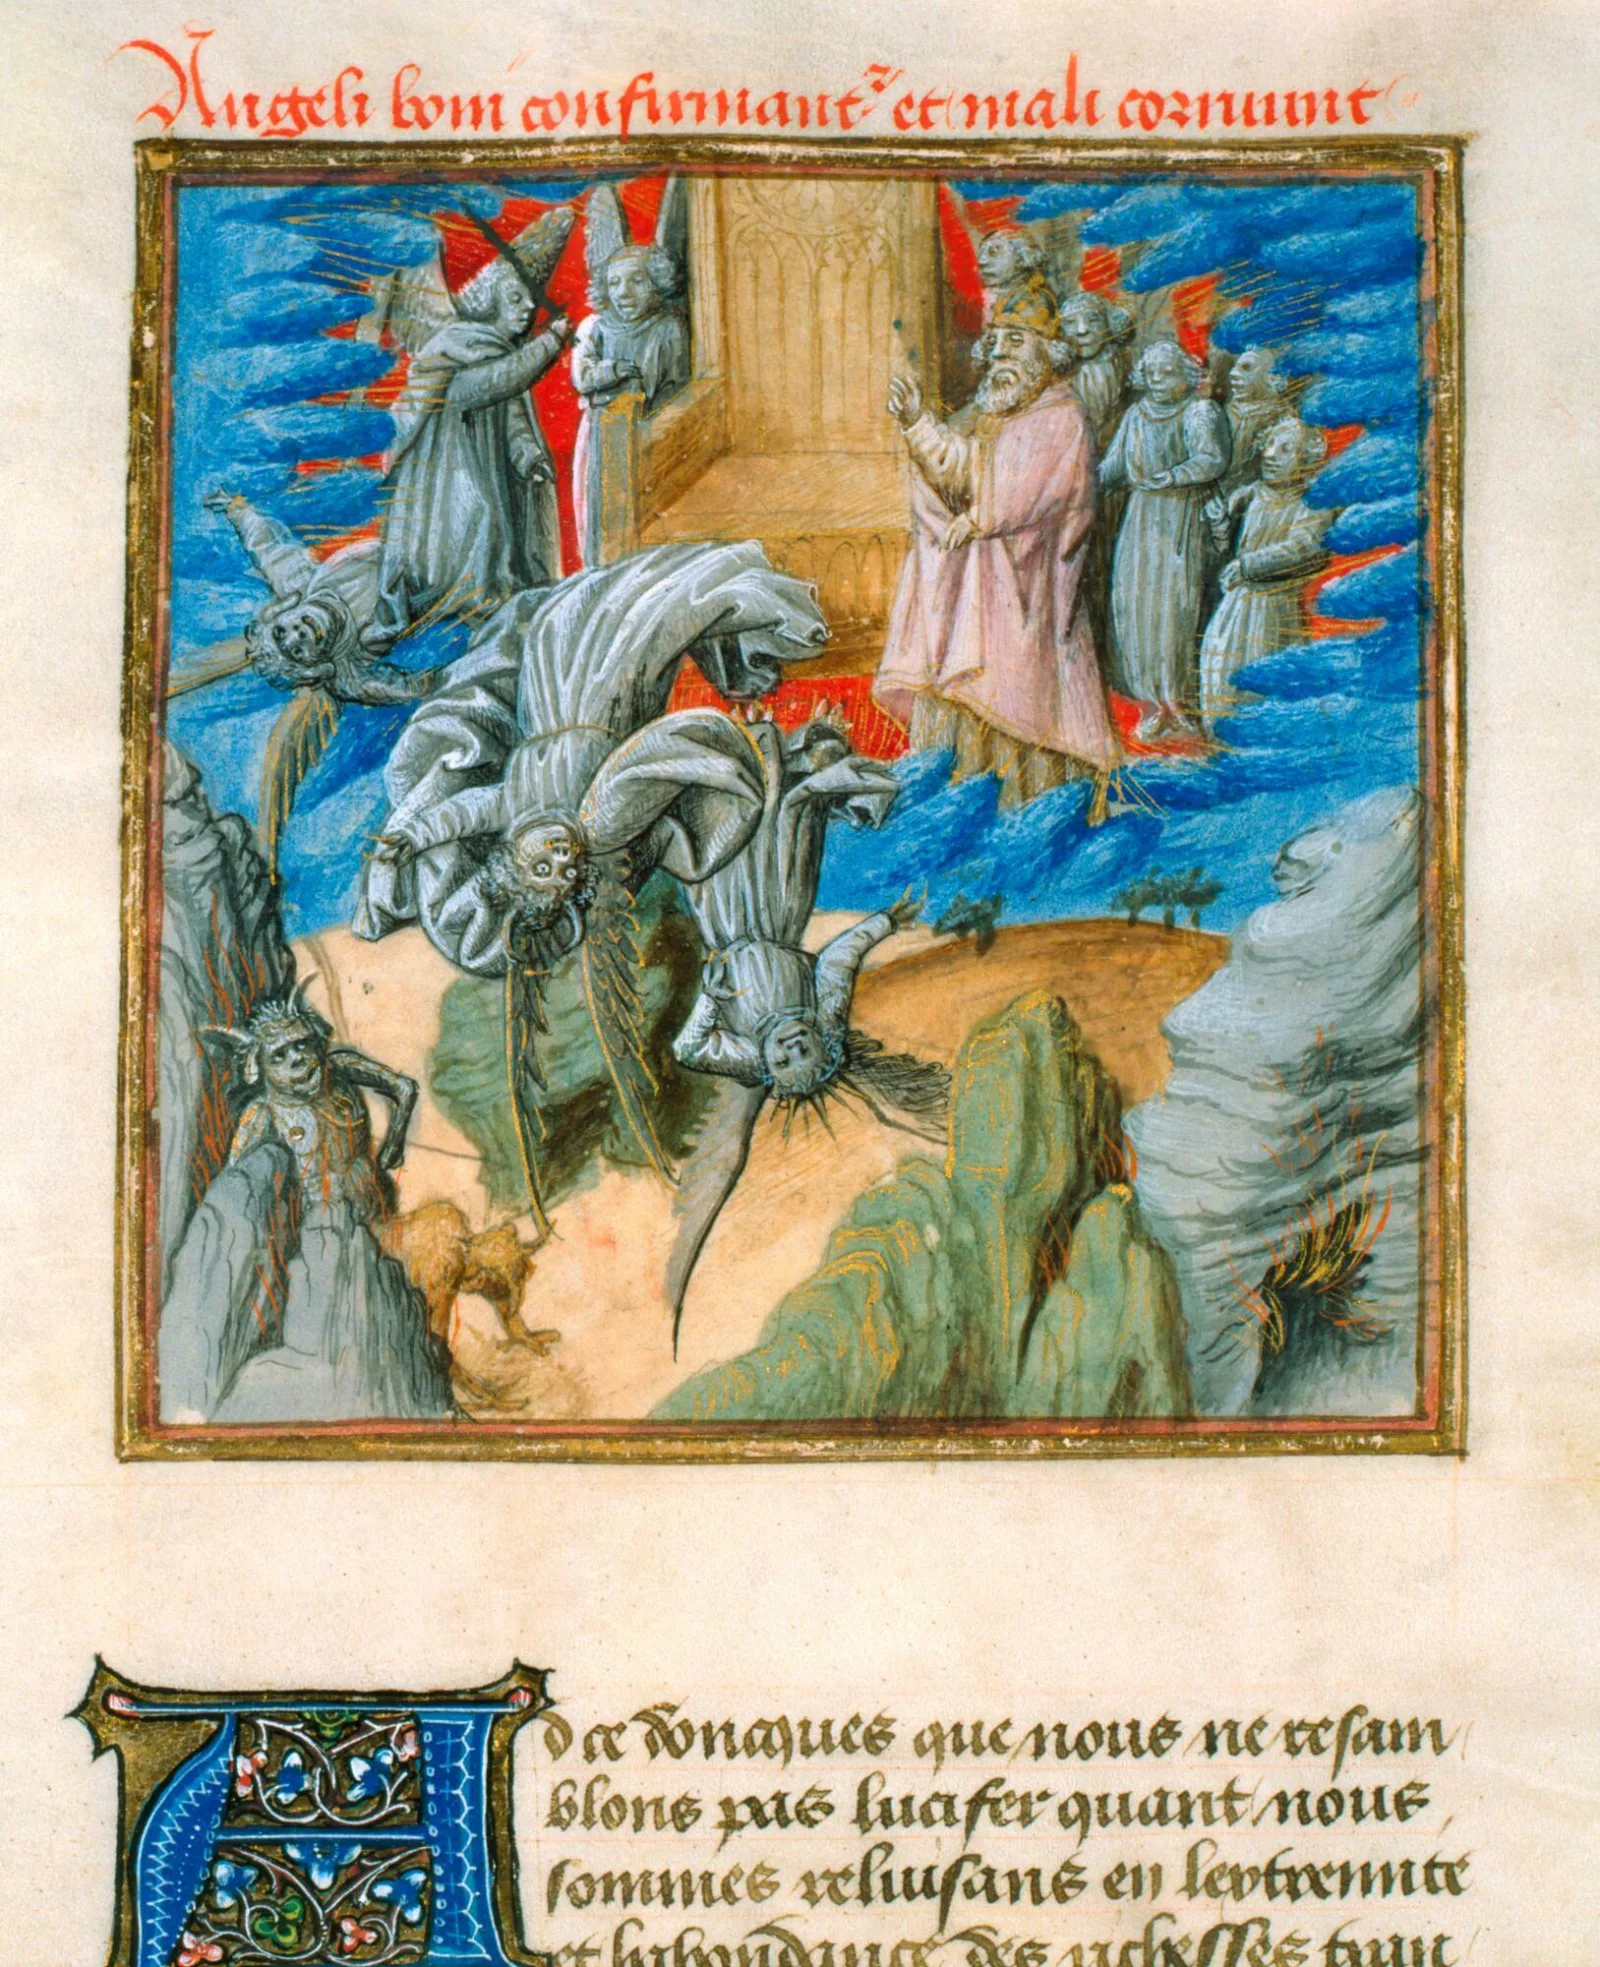 Angeli boni confirmantr et mali corruunt
Ad ce doncques que nous ne resam
blons pas lucifer quant nous
sommes reluisans en lextremite
et habondance des richesses tran